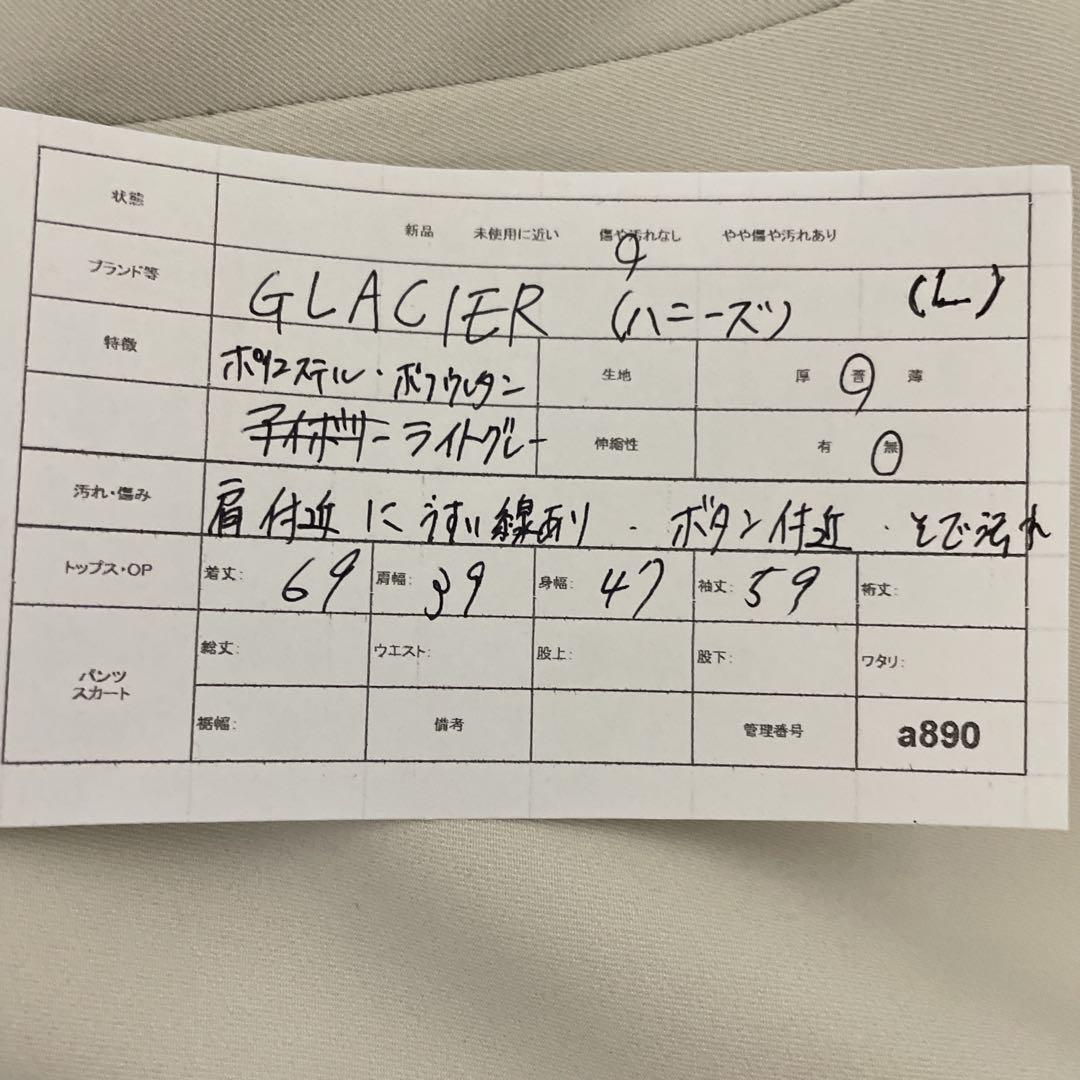 状態 新品 未使用に近い 傷や汚れなし やや傷や汚れあり
ブランド等 GLACIER (ハニーズ) (L)
特徴 ポリエステル・ポリウレタン 生地 厚 普 薄
ライトグレー 伸縮性 有 無
汚れ・傷み 肩付近にうすい線あり・ボタン付近・そで汚れ
トップス・OP 着丈: 69 肩幅: 39 身幅: 47 袖丈: 59 裄丈:
パンツ スカート 総丈: ウエスト: 股上: 股下: ワタリ:
裾幅: 備考 管理番号 a890